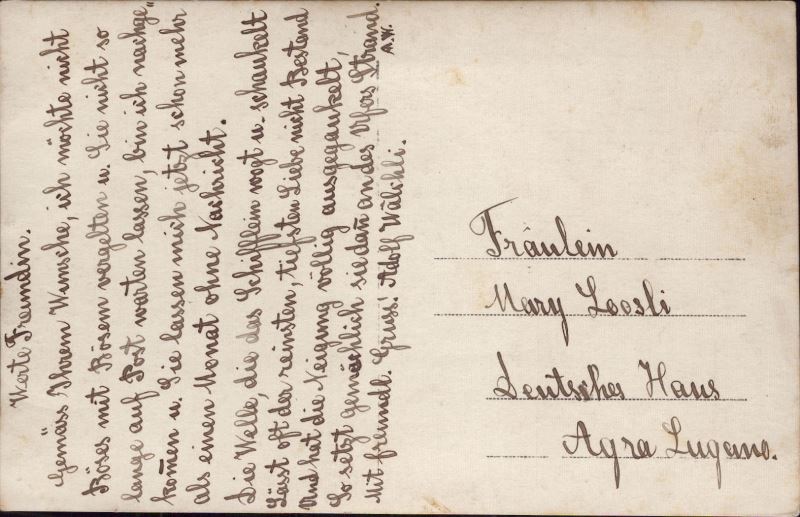 Werte Freundin.
Gemäss Ihrem Wunsche, ich möchte nicht
Böses mit Bösem vergelten u. Sie nicht so
lange auf Post warten lassen, bin ich nachge"
kom̄en u. Sie lassen mich jetzt schon mehr
als einen Monat ohne Nachricht.
Die Welle, die das Schifflein wogt u. schaukelt
Lässt oft der reinsten, tiefsten Liebe nicht Bestand
Und hat die Neigung völlig ausgegaukelt,
So setzt gemächlich sie dan̄ an des Ufers Strand.
A.W.
Mit freundl. Gruss! Adolf Wälchli.
Fräulein
Mary Loosli
Deutsches Haus
Agra Lugano.